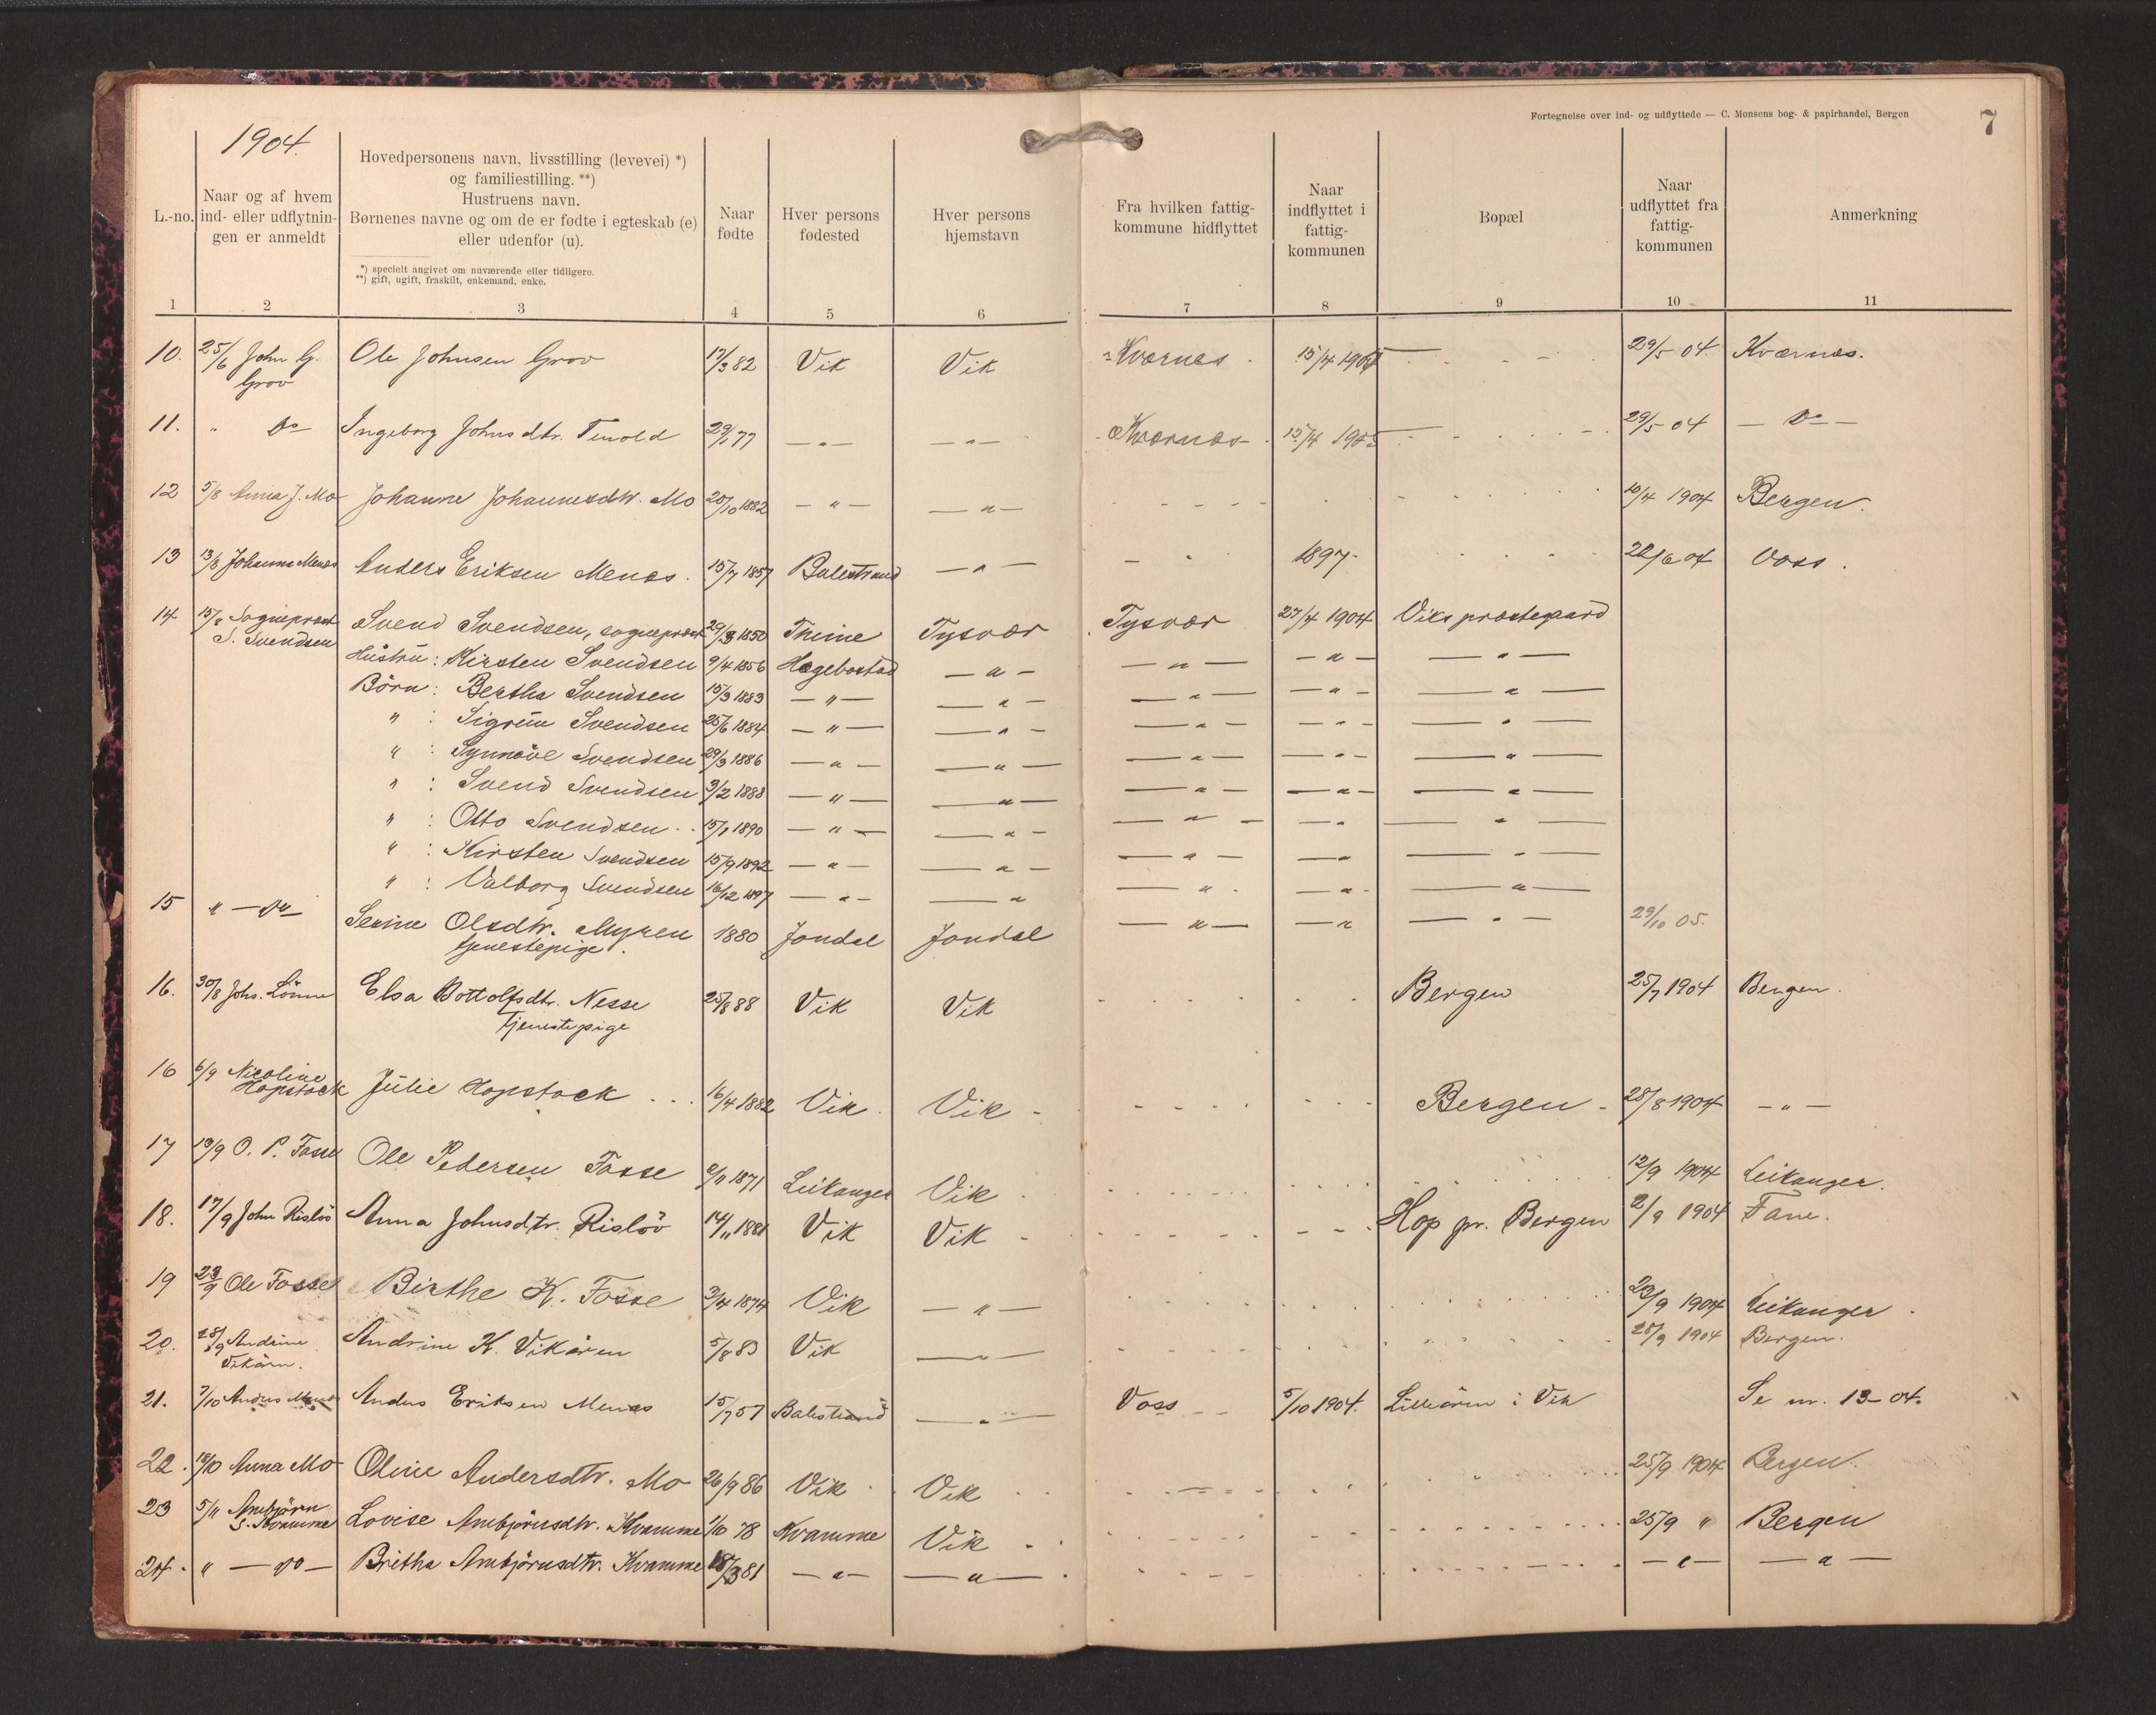 Fortegnelse over ind- og udflyttede — C. Monsens bog- & papirhandel, Bergen
7
1904.
L.-no.
Naar og af hvem ind- eller udflytnin-gen er anmeldt
Hovedpersonens navn, livsstilling (levevei) *)
og familiestilling. **)
Hustruens navn.
Børnenes navne og om de er fødte i egteskab (e)
eller udenfor (u).
*) specielt angivet om nuværende eller tidligere.
**) gift, ugift, fraskilt, enkemand, enke.
Naar fødte
Hver persons fødested
Hver persons hjemstavn
Fra hvilken fattig-kommune hidflyttet
Naar indflyttet i fattig-kommunen
Bopæl
Naar udflyttet fra fattig-kommunen
Anmerkning
1 2 3 4 5 6 7 8 9 10 11
10. 25/6 John G. Grov Ole Johnsen Grov 17/3 82 Vik Vik Kvernes 15/4 29/5 04 Kværnes.
11. " Do Ingeborg Johnsdtr. Tenold 29/1 77 — " — — " — Kværnes 15/4 29/5 04 — Do —
12 5/8 Anna J. Mo Johanne Johannesdtr. Mo 20/10 1882 — " — — " — 10/4 1904 Bergen.
13 13/8 Johanna Menes Anders Eriksen Menes. 15/7 1857 Balestrand — " — — " 1897. 22/6 04 Voss.
14 15/8 Sogneprest S. Svendsen Svend Svendsen, sogneprest 29/3 1850 Theine Tysvær Tysvær 27/4 1904 Viks prestegaard
Hustru: Kirsten Svendsen 9/4 1856 Hegebostad — " — — " — — " — — " —
Börn: Bertha Svendsen 15/3 1883 — " — — " — — " — — " — — " —
" : Sigrun Svendsen 25/6 1884 — " — — " — — " — — " — — " —
" : Synnöve Svendsen 29/3 1886 — " — — " — — " — — " — — " —
" : Svend Svendsen 3/2 1888 — " — — " — — " — — " — — " —
" : Otto Svendsen 15/1 1890 — " — — " — — " — — " — " —
" : Kirsten Svendsen 15/9 1892 — " — — " — — " — — " — " —
" : Valborg Svendsen 16/12 1897 — " — — " — " — " — — " —
15 " — Do — Serine Olsdtr. Myren 1880 Jondal Jondal — " — — " — " — 29/10 05.
tjenestepige.
16. 30/8 Johs. Lönne Elsa Bottolfsdtr. Nesse 25/8 88 Vik Vik Bergen 25/7 1904 Bergen.
Tjenestepige
16 6/9 Nicoline Hopstock Julie Hopstock 16/4 1882 Vik Vik Bergen 28/8 1904 — " —
17 13/9 O. P. Fosse Ole Pedersen Fosse 1871 Leikanger Vik 12/9 1904 Leikanger.
18. 17/9 John Rislöv Anna Johnsdtr. Rislöv 14/11 1881 Vik Vik Hop pr. Bergen 2/9 1904 Fane.
19 23/9 Ole Fosse Birthe K. Fosse 3/4 1874 Vik — " — 23/9 1904 Leikanger
20. 28/9 Andrine Vikören. Andrine K. Vikören 5/8 83 Vik — " — 28/9 1904 Bergen.
21. 7/10 Anders Menes Anders Eriksen Menes 15/7 57 Balestrand — " — Voss 5/10 1904. Lilleören i Vik Se nr. 13-04.
22. 18/10 Anna Mo Oline Andersdtr. Mo 26/9 86 Vik Vik 25/9 1904 Bergen.
23 5/11 Ambjörn S. Kvamme Lovise Ambjörnsdtr. Kvamme 1/10 78 Kvamme Vik 25/9 " Bergen
24. " — Do — Britha Ambjörnsdtr. Kvamme 18/3 81 — " — — " — — " — — " —